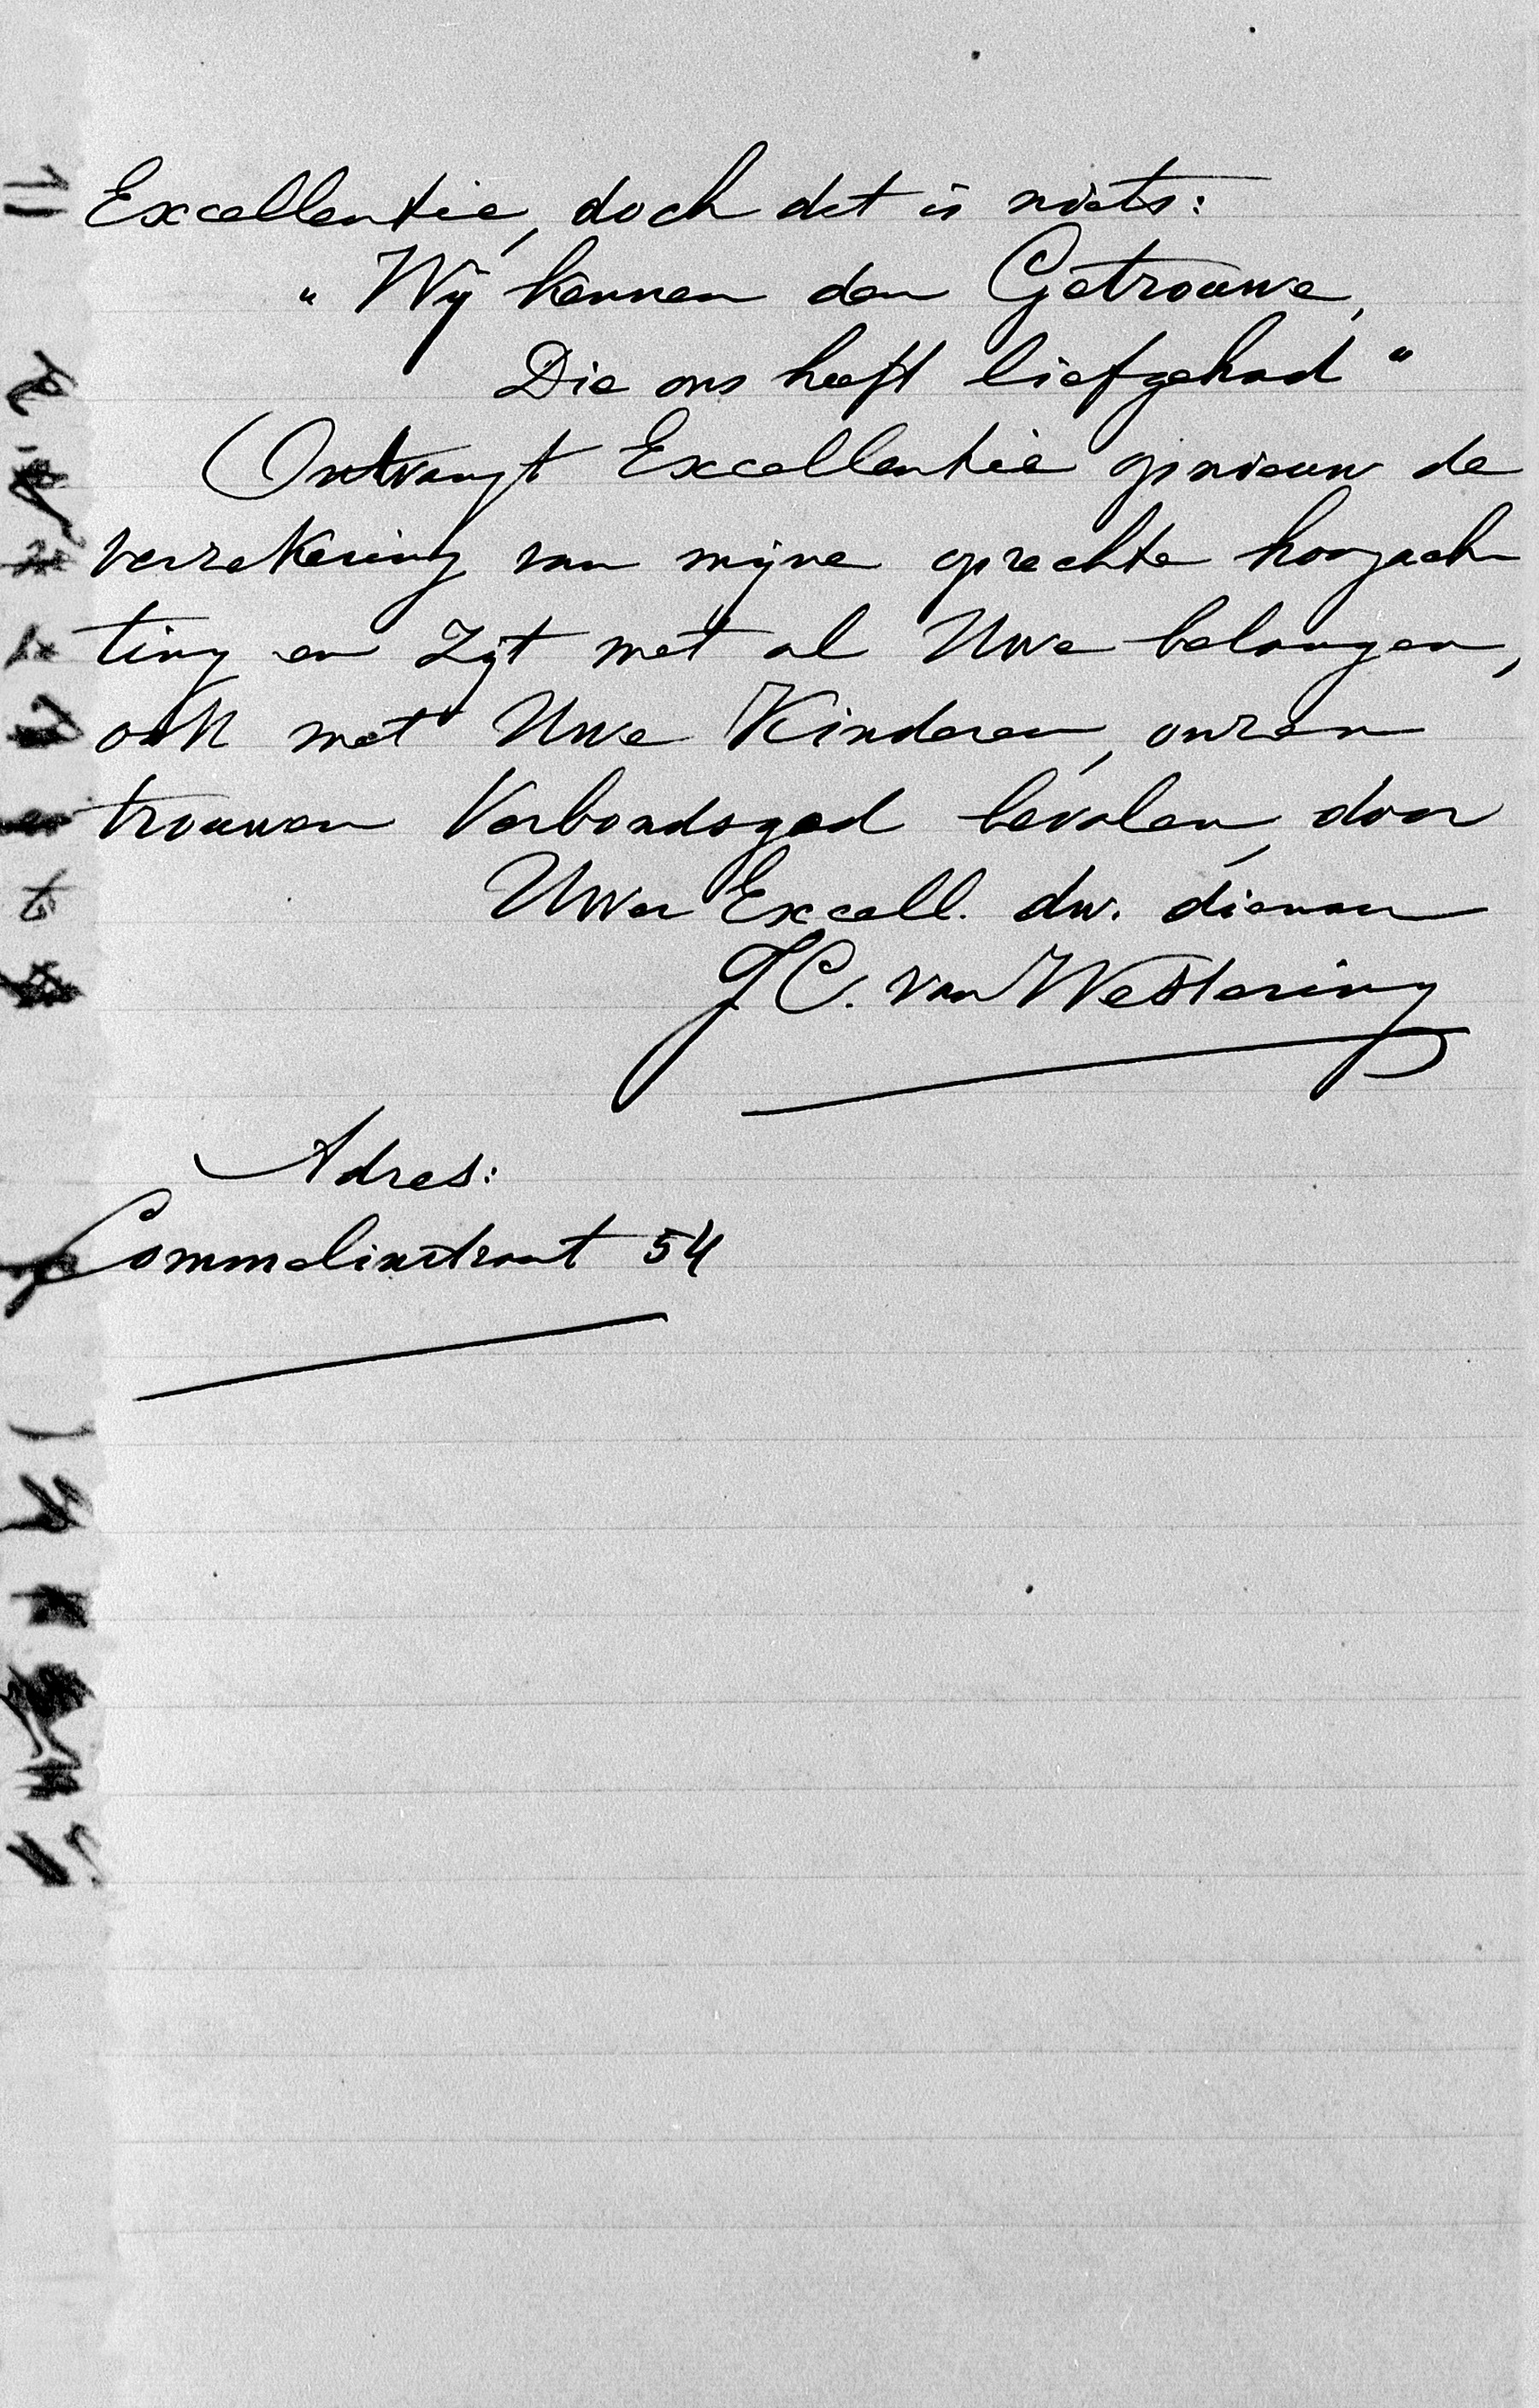 Excellentie, doch dat is niets:
"Wij kennen den Getrouwe,
Die ons heeft liefgehad"
Ontvangt Excellentie opnieuw de
verzekering van mijne oprechte hoogach
ting en Zijt met al Uwe belangen,
ook met Uwe Kinderen, onzen
trouwen Verbondsgod bevolen, door
Uwer Excell. dw. dienaar
J C. van Westering
Adres:
Commelinstraat 54